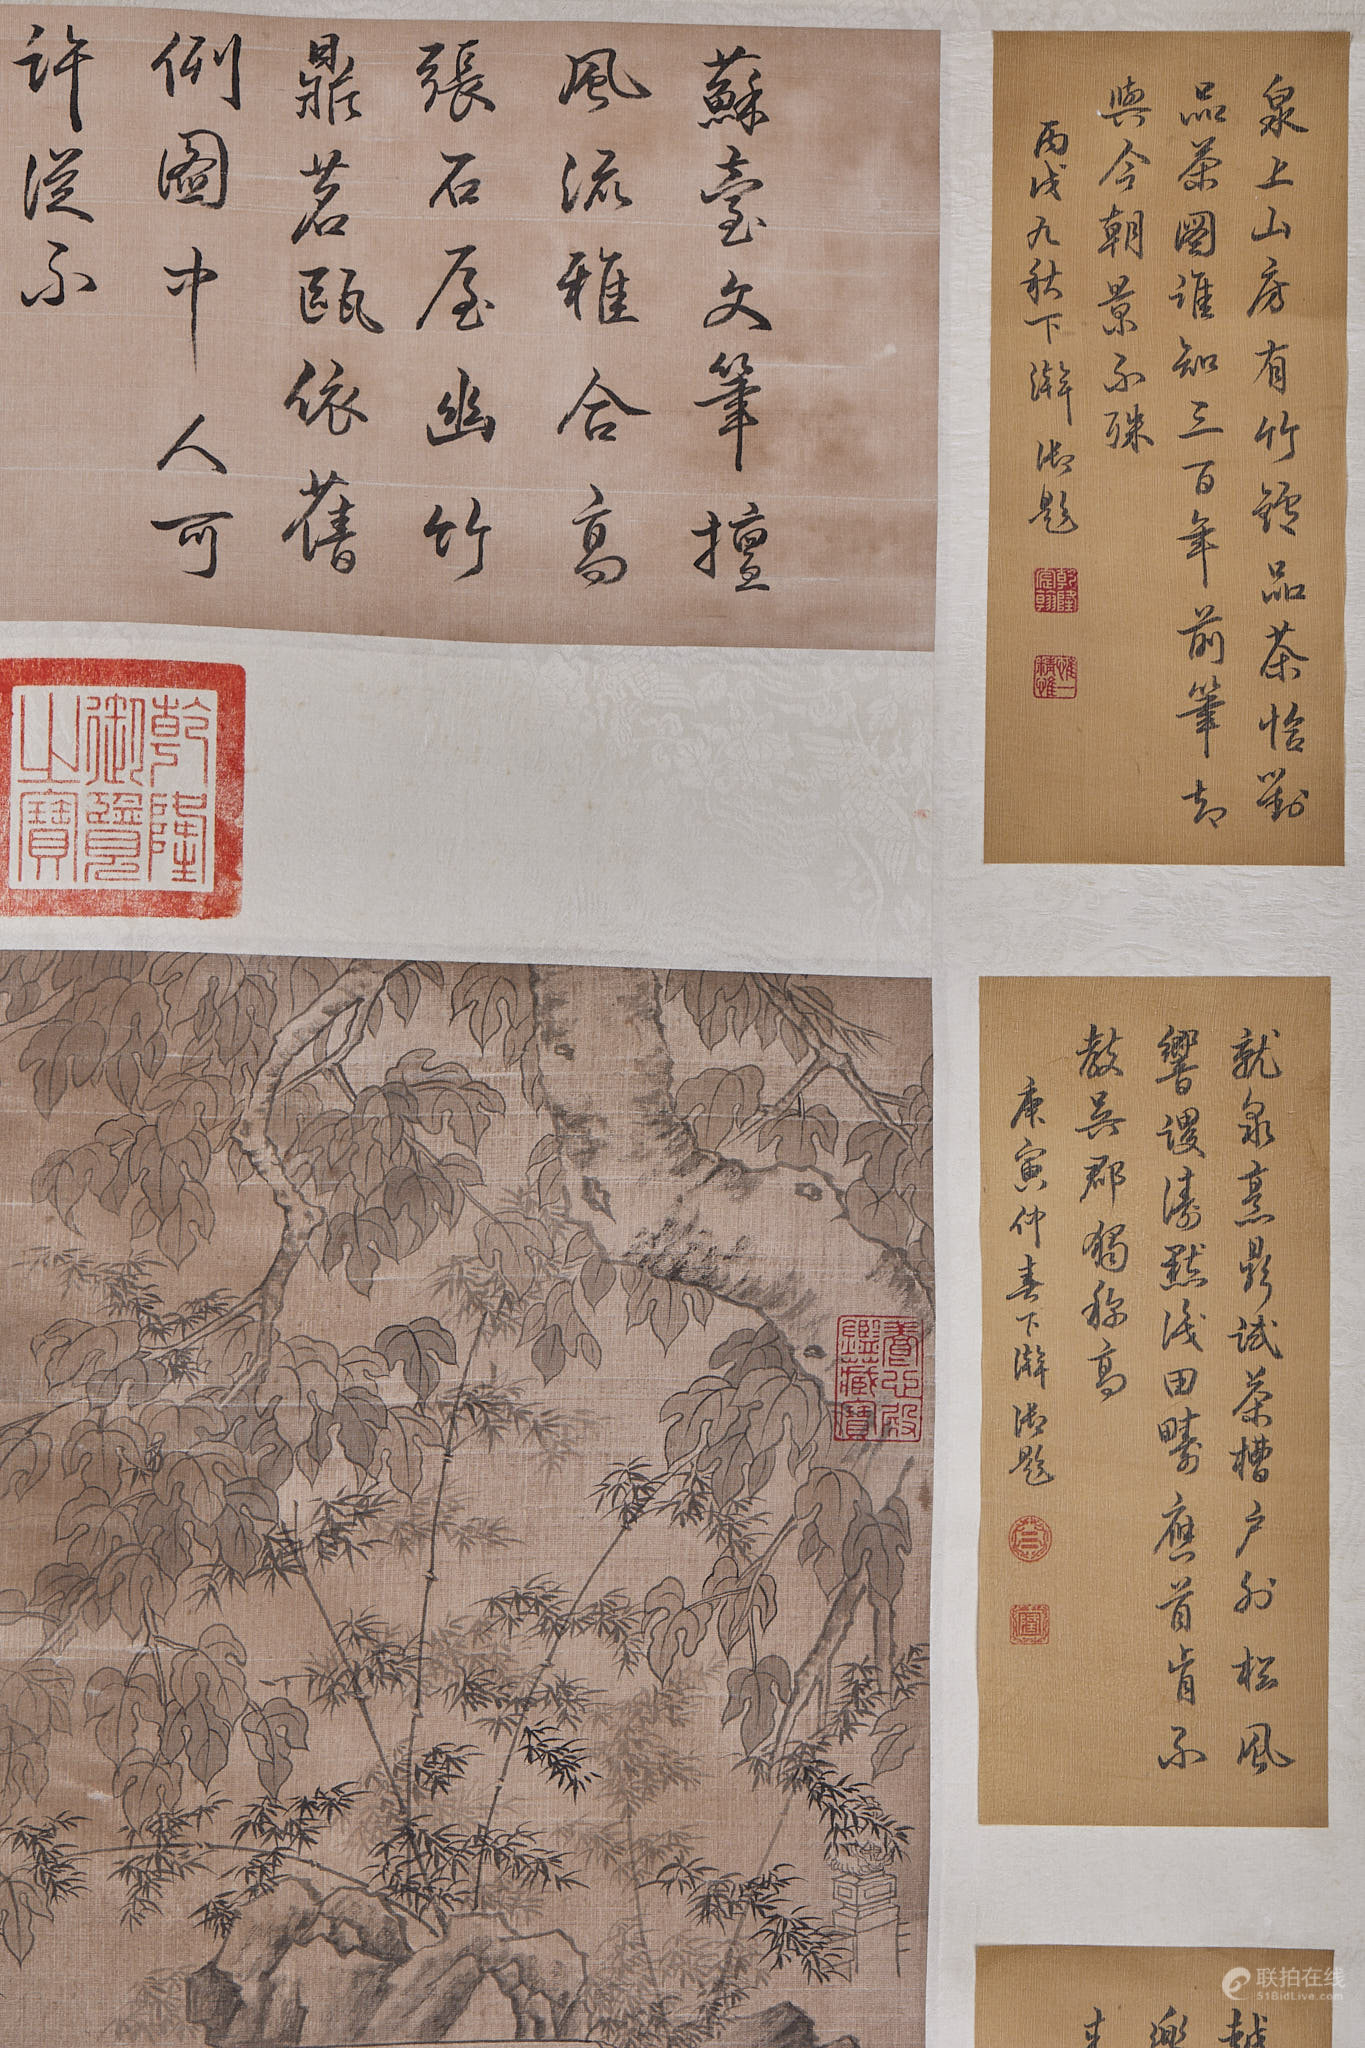 蘇臺文筆擅
風流雅合高
張石屋幽竹
鼎茗甌依舊
例圖中人可
許從不
乾隆
御覽
之寶
泉上山房有竹鑪品茶恰對
品茶圖誰知三百年前筆却
與今朝景不殊
丙戌九秋下澣御題
乾隆
宸翰
惟一
精惟
就泉烹鼎試茶槽戶外松風
響謖濤黙淺田疇應首肯不
教吳郡獨稱高
庚寅仲春下澣御題
隆
養心殿
鑑藏寶
越
樂
来
联拍在线
51BidLive.com